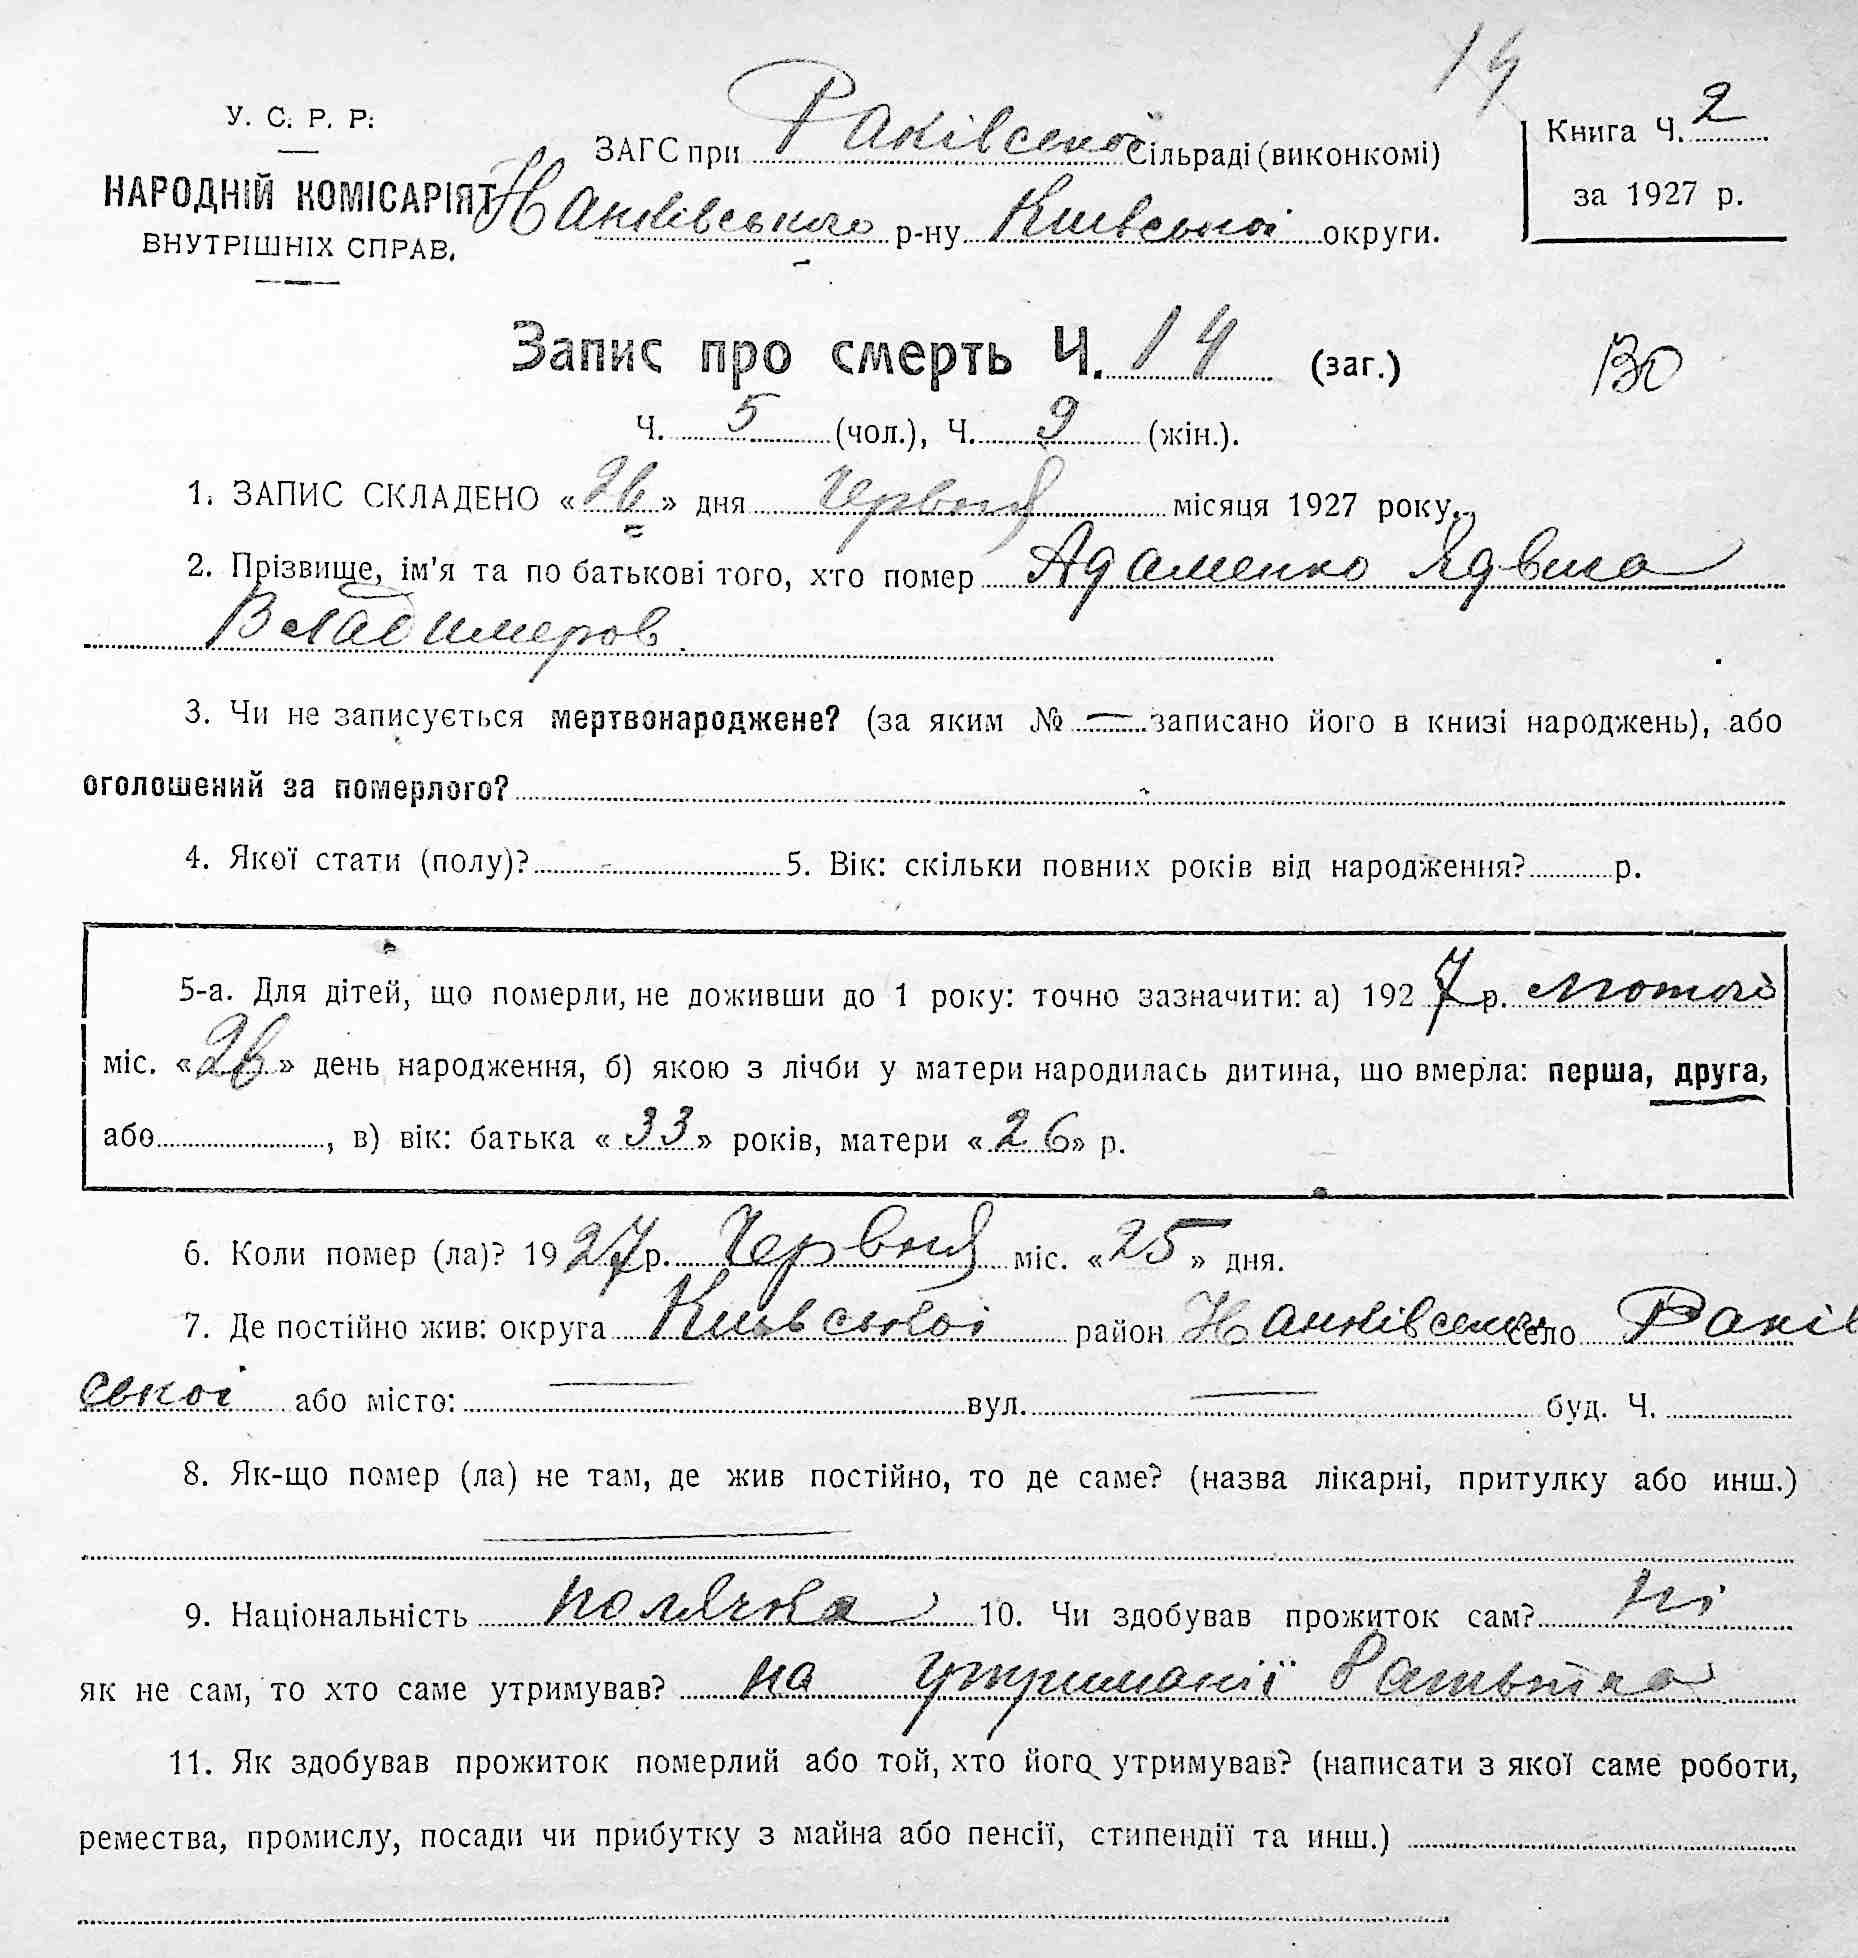 14
У. С. Р. Р.
НАРОДНІЙ КОМІСАРІЯТ
ВНУТРІШНІХ СПРАВ.
ЗАГС при Раківської Сільраді (виконкомі)
Ханківського р-ну Київської округи.
Книга Ч. 2
за 1927 р.
Запис про смерть Ч. 14 (заг.)
Ч. 5 (чол.), Ч. 9 (жін.).
1. ЗАПИС СКЛАДЕНО «26» дня Червня місяця 1927 року.
2. Прізвище, ім'я та по батькові того, хто помер Адаменко Ядвига
Владимеров
3. Чи не записується мертвонароджене? (за яким № — записано його в книзі народжень), або
оголошений за померлого?
4. Якої стати (полу)? 5. Вік: скільки повних років від народження? р.
5-а. Для дітей, що померли, не доживши до 1 року: точно зазначити: а) 1927 р. Лютого
міс. «26» день народження, б) якою з лічби у матери народилась дитина, що вмерла: перша, друга,
або , в) вік: батька «33» років, матери «26» р.
6. Коли помер (ла)? 1927 р. Червня міс. «25» дня.
7. Де постійно жив: округа Київської район Ханківського село Раків
ської або місто: — вул. — буд. Ч.
8. Як-що помер (ла) не там, де жив постійно, то де саме? (назва лікарні, притулку або инш.)
9. Національність полячка 10. Чи здобував прожиток сам? ні
як не сам, то хто саме утримував? на утриманії батька
11. Як здобував прожиток померлий або той, хто його утримував? (написати з якої саме роботи,
ремества, промислу, посади чи прибутку з майна або пенсії, стипендії та инш.)